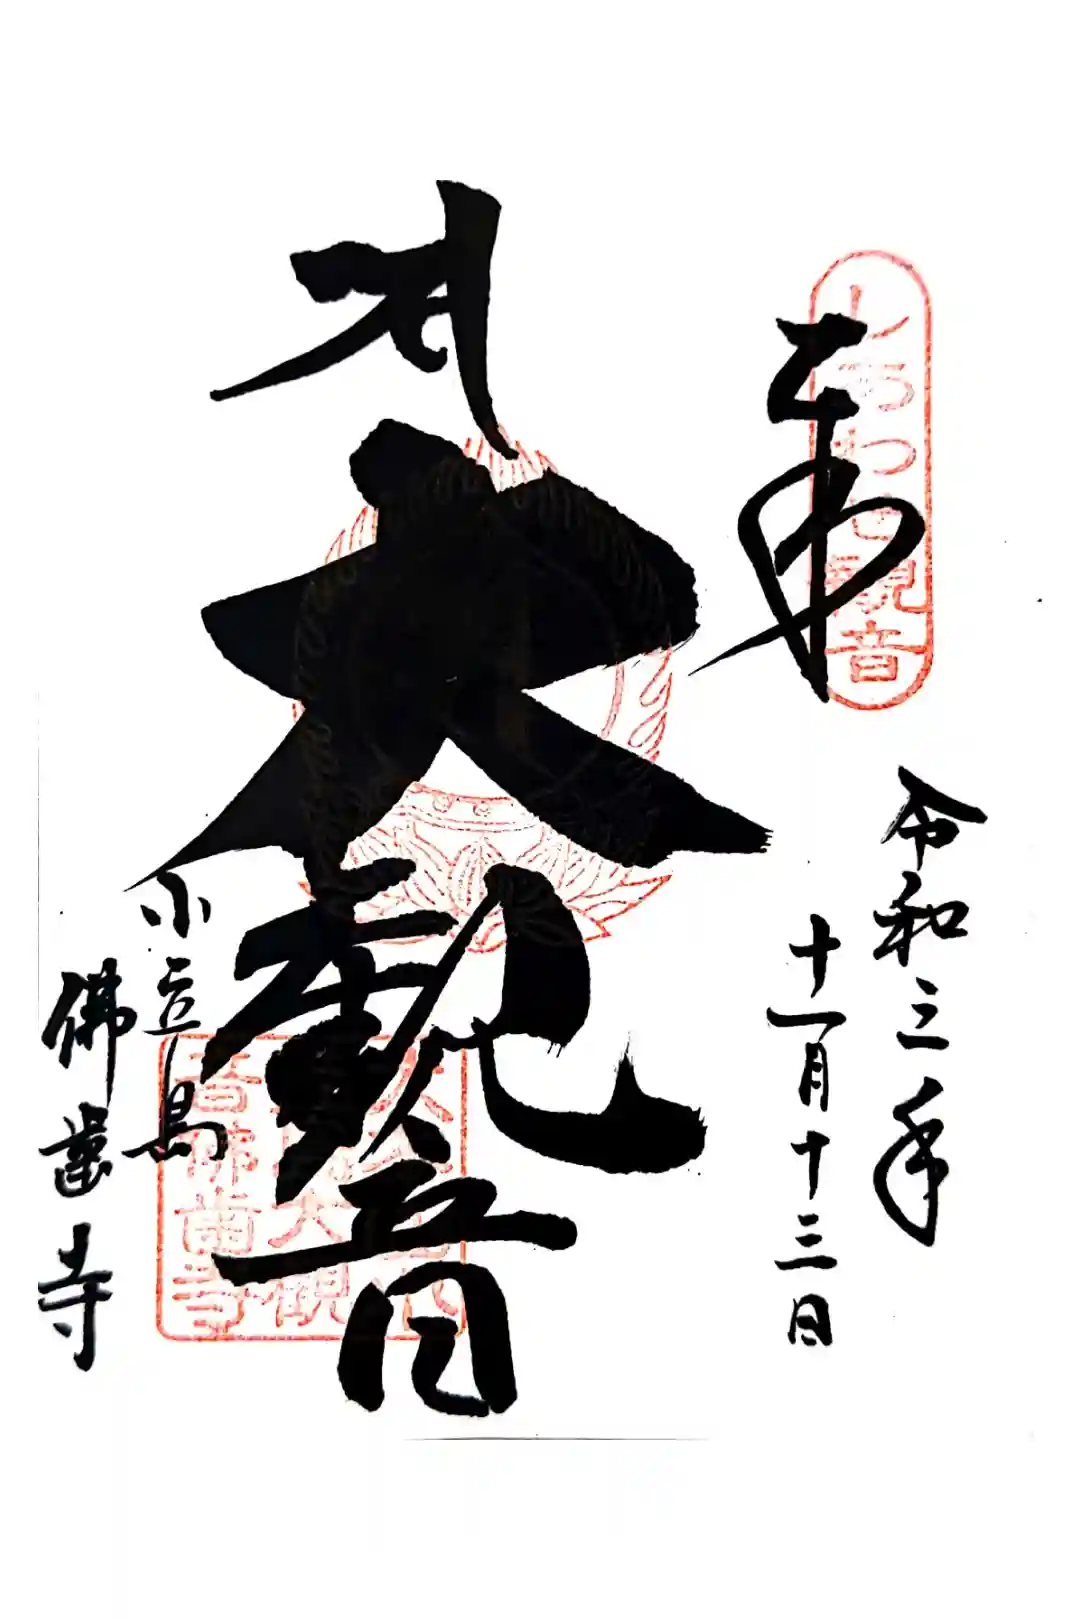 奉
しあわせ観音
令和三年
十一月十三日
大観音
小豆島
佛歯寺
音佛歯寺